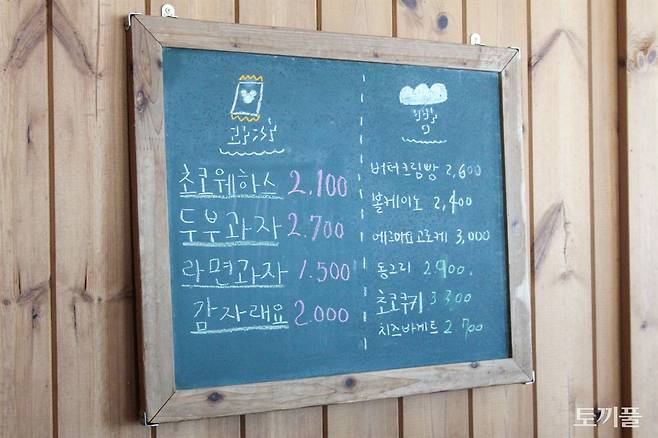 과자
초코웨하스 2.100
두부과자 2.700
라면과자 1.500
감자래요 2.000
빵
버터크림빵 2,600
볼케이노 2,400
에그마요고로케 3,000
동그리 2.900
초코쿠키 3300
치즈바게트 2700
토끼풀